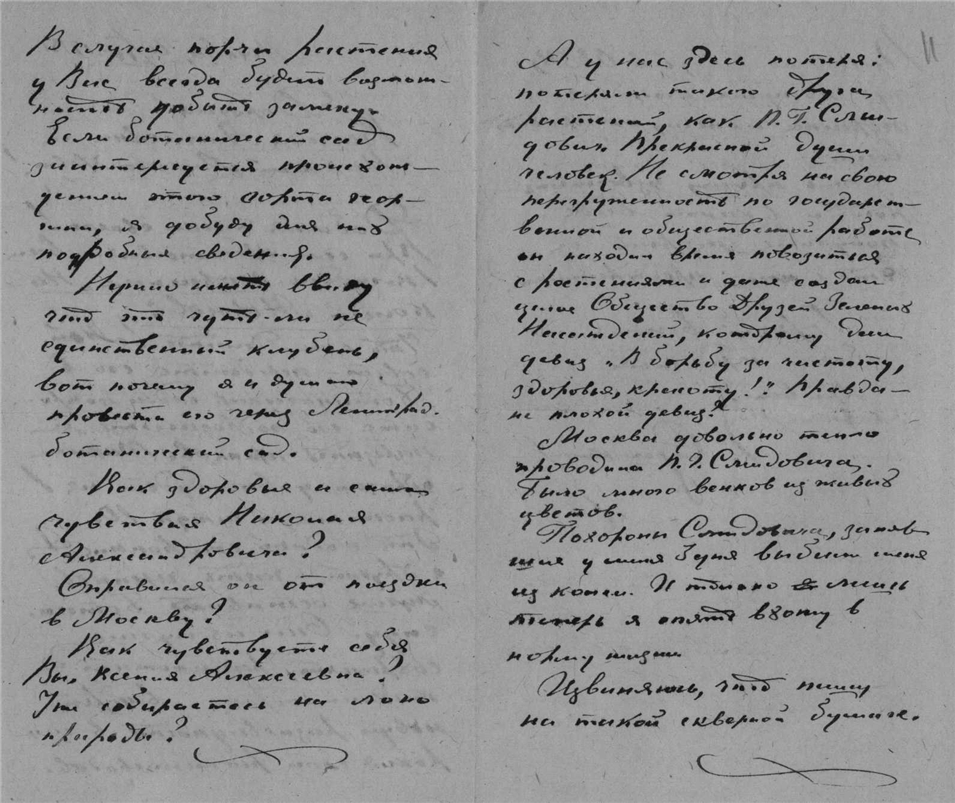 В случае порчи растения
у Вас всегда будет возмож-
ность добыть замену.
Если ботанический сад
заинтересуется происхож-
дением этого сорта геор-
гин, я добуду для них
подробные сведения.
Нужно иметь ввиду
что это чуть-ли не
единственный клубень,
вот почему я и думаю
провести его через Ленинград.
ботанический сад.
Как здоровье и само
чувствие Николая
Александровича?
Оправился он от поездки
в Москву?
Как чувствуете себя
Вы, Ксения Алексеевна?
Уже собираетесь на лоно
природы?
11
А у нас здесь потеря:
потеряли такого друга
растений, как П.Г. Сми-
дович. Прекрасной души
человек. Не смотря на свою
перегруженность по государст-
венной и общественной работе
он находил время повозиться
с растениями и даже создал
целое Общество Друзей Зеленых
Насаждений, которому дал
девиз „В борьбу за чистоту,
здоровье, красоту!“ Правда-
не плохой девиз?
Москва довольно тепло
проводила П.Г. Смидовича.
Было много венков из живых
цветов.
Похороны Смидовича, заняв-
шие у меня 3 дня выбили меня
из колеи. И только лишь
теперь я опять вхожу в
норму жизни
Извиняюсь, что пишу
на такой скверной бумаге.